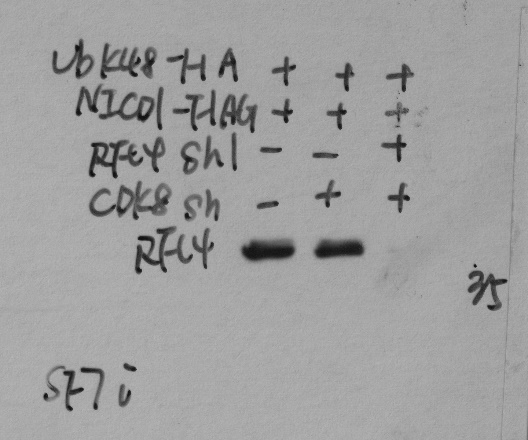 UbK48-HA + + +
NICD1-FLAG + + +
RFC4 sh1 - - +
CDK8 sh - + +
RFC4
35
SF7i